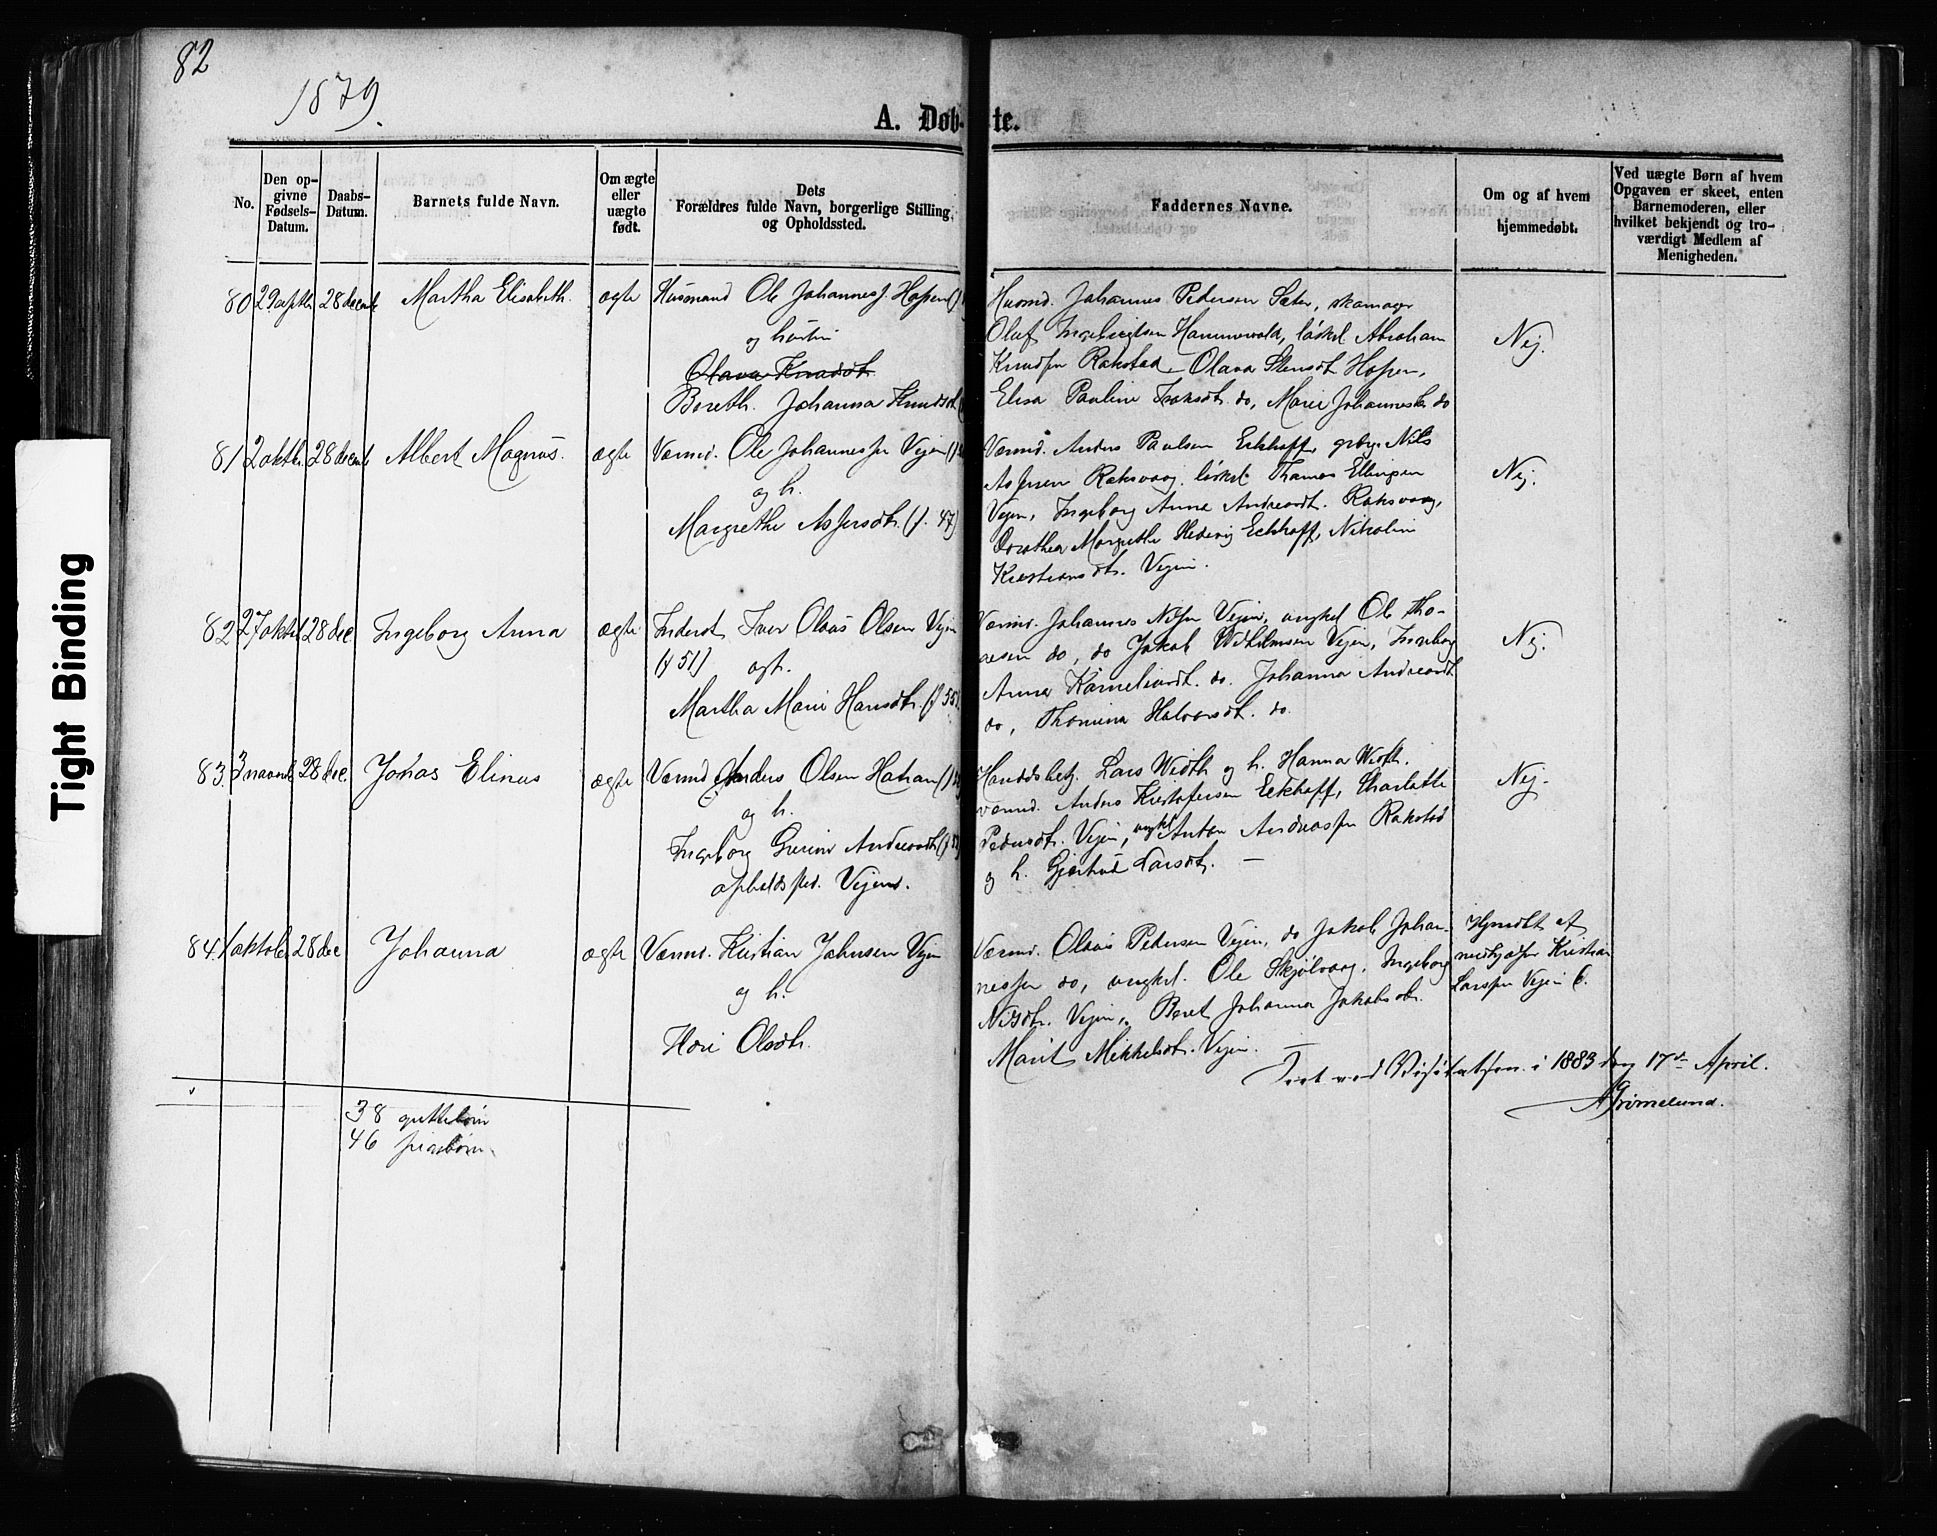 82
1879.
A. Døb- te.
No.
Den op-
givne
Fødsels-
Datum.
Daabs-
Datum.
Barnets fulde Navn.
Om ægte
eller
uægte
født.
Dets
Forældres fulde Navn, borgerlige Stilling,
og Opholdssted.
Faddernes Navne.
Om og af hvem
hjemmedøbt.
Ved uægte Børn af hvem
Opgaven er skeet, enten
Barnemoderen, eller
hvilket bekjendt og tro-
værdigt Medlem af
Menigheden.
80 28 decemb Martha Elisabeth ægte Husmand Ole Johannes. Hopen
og hustru
Olava Knudsdt.
Bereth. Johanna Knudsdt.
Husmd. Johannes Pedersen Sæter, skomager
Oluf Ingebrigtsen Hammervold, løskd Abraham
Knudsen Rakstad, Olava Stensdt. Hopen,
Elisa Pauline Isaksdt. do, Marie Johannesdt. do
Nej.
81 2 oktb. 28 decemb Albert Magnus. ægte Værmd. Ole Johannessen Vejen
og h.
Margrethe Aspersdt. (f. 47)
Værmd. Anders Paulsen Eckhoff, grbg. Nils
Aspersen Raksvaag, løskd. Thomas Ellingsen
Vejen, Ingeborg Anna Andreasdt. Raksvaag,
Dorothea Margrethe Hedevig Eckhoff, Nikoline
Kristiansdt. Vejen.
Nej.
82 27 oktb. 28 dec. Ingeborg Anna ægte Inderst Iver Olaus Olsen Vejen
(f 51) og h.
Martha Marie Hansdt. (f 55)
Værmd. Johannes Nilsen Vejen, ungkd Ole Tho-
mesen do, do Jakob Wilhelmsen Vejen, Ingeborg
Anna Kornelius​dt. do. Johanna Andreasdt
do, Thomina Halvorsdt. do.
Nej.
83. 3 novemb. 28 dec. Johas Elinus ægte Værmd Anders Olsen Hatran
og h.
Ingeborg Gurine Andreasdt.
opholdssted. Vejen.
Handelsbetj. Lars Width og h. Hanna Width.
værmd. Anders Kristofersen Eckhoff, Charlotte
Pedersdt. Vejen, ungkd Anton Andreassen Rakstad
og h. Gjertrud Larsdt. —
Nej.
84. 1 oktob. 28 dec Johanna ægte Værmd. Kristian Johnsen Vejen
og h.
Olsdt.
Værmd. Olaus Pedersen Vejen, do Jakob Johan-
nessen do, ungkd. Ole Skjølvaag, Ingeborg
Nilsdt. Vejen, Beret Johanna Jakobsdt.
Marit Mikkelsdt. Vejen. —
Hjmdbt af
Kristian
Larssen Vejen
38 guttebørn
46 pigebørn.
Seet ved Visitatsen i 1883 den 17de April.
AGrimelund.
Tight Binding